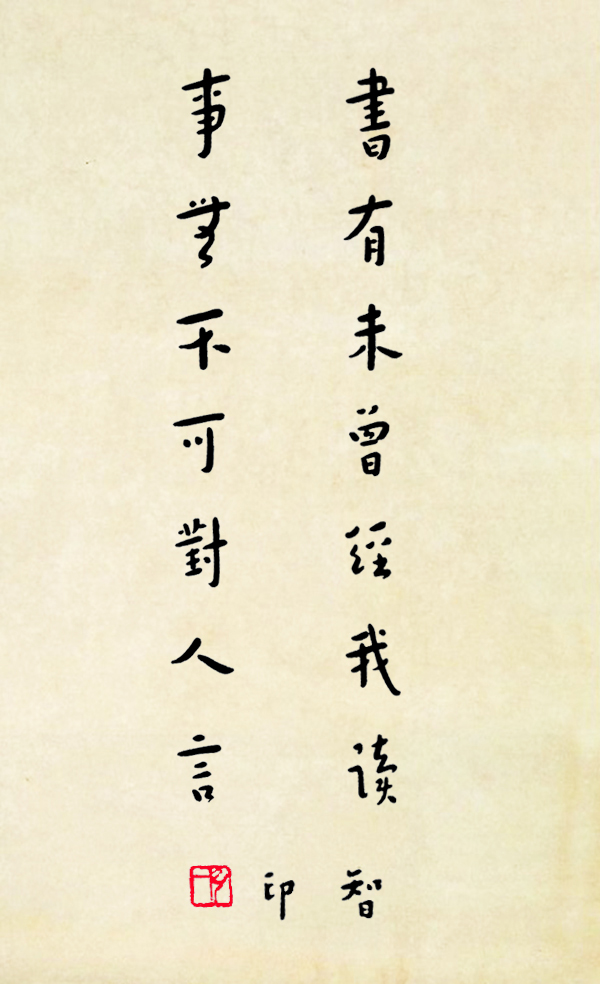 書有未曾經我读
事無不可對人言
智印